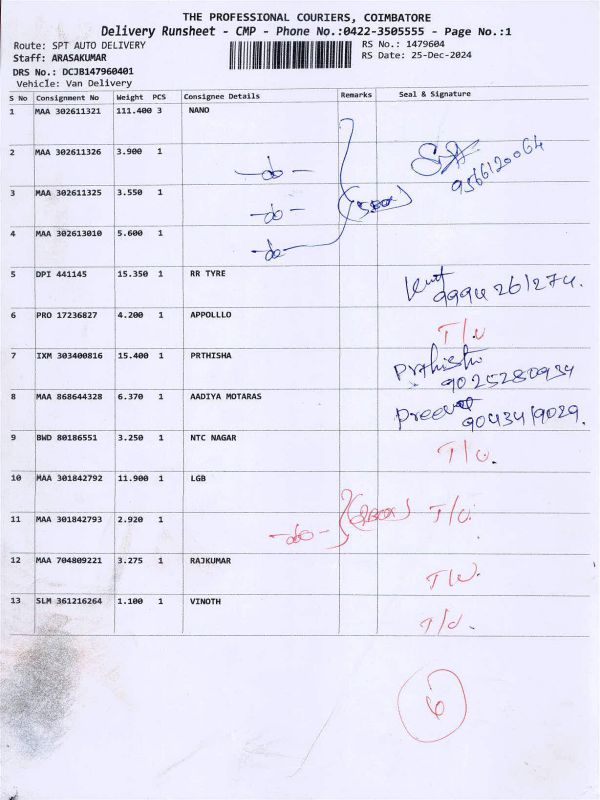 THE PROFESSIONAL COURIERS, COIMBATORE
Delivery Runsheet - CMP - Phone No.:0422-3505555 - Page No.:1
Route: SPT AUTO DELIVERY RS No.: 1479604
Staff: ARASAKUMAR RS Date: 25-Dec-2024
DRS No.: DCJB147960401
Vehicle: Van Delivery
S No Consignment No Weight PCS Consignee Details Remarks Seal & Signature
1 MAA 302611321 111.400 3 NANO
2 MAA 302611326 3.900 1 -do- 9566120064
3 MAA 302611325 3.550 1 -do-
4 MAA 302613010 5.600 1 -do-
5 DPI 441145 15.350 1 RR TYRE 9994261274.
6 PRO 17236827 4.200 1 APPOLLLO T/U
7 IXM 303400816 15.400 1 PRTHISHA 9025280934
8 MAA 868644328 6.370 1 AADIYA MOTARAS 9043419029.
9 BWD 80186551 3.250 1 NTC NAGAR T/U.
10 MAA 301842792 11.900 1 LGB
11 MAA 301842793 2.920 1 -do- T/U.
12 MAA 704809221 3.275 1 RAJKUMAR T/U.
13 SLM 361216264 1.100 1 VINOTH T/U.
6